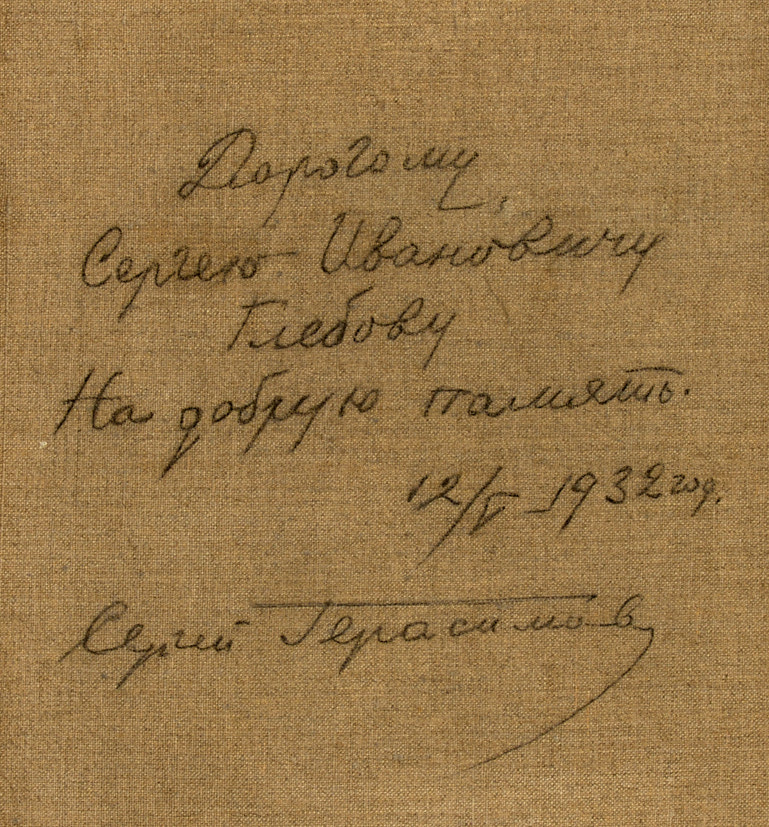 Дорогому,
Сергею Ивановичу
Глебову
На добрую память.
12/V – 1932 год.
Сергей Герасимов